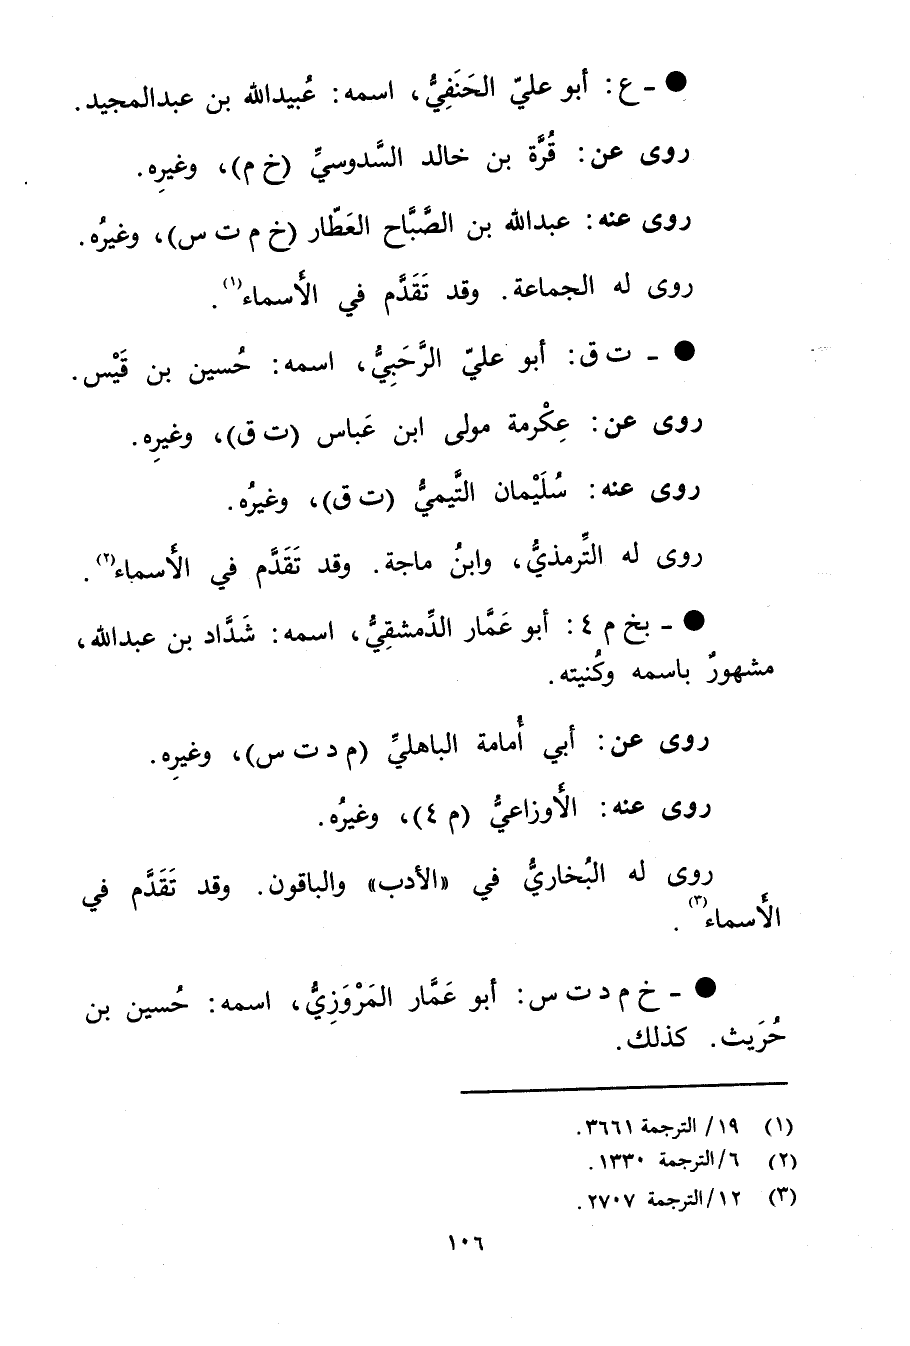 ● ـ ع: أبو عليّ الحَنَفِيُّ، اسمه: عُبيدالله بن عبدالمجيد.
روى عن: قُرَّة بن خالد السَّدوسيِّ (خ م)، وغيرِه.
روى عنه: عبدالله بن الصَّبَّاح العَطَّار (خ م ت س)، وغيرُه.
روى له الجماعة. وقد تَقَدَّم في الأَسماء(١).
● ـ ت ق: أبو عليّ الرَّحَبِيُّ، اسمه: حُسين بن قَيْس.
روى عن: عِكْرمة مولى ابن عَباس (ت ق)، وغيرِه.
روى عنه: سُلَيْمان التَّيميُّ (ت ق)، وغيرُه.
روى له التِّرمذيُّ، وابنُ ماجة. وقد تَقَدَّم في الأَسماء(٢).
● ـ بخ م ٤: أبو عَمَّار الدِّمشقِيُّ، اسمه: شَدَّاد بن عبدالله،
مشهورٌ باسمه وكُنيته.
روى عن: أبي أُمامة الباهليِّ (م د ت س)، وغيرِه.
روى عنه: الأَوزاعيُّ (م ٤)، وغيرُه.
روى له البُخاريُّ في «الأدب» والباقون. وقد تَقَدَّم في
الأَسماء(٣).
● ـ خ م د ت س: أبو عَمَّار المَرْوَزِيُّ، اسمه: حُسين بن
حُرَيث. كذلك.
(١) ١٩/ الترجمة ٣٦٦١.
(٢) ٦/الترجمة ١٣٣٠.
(٣) ١٢/الترجمة ٢٧٠٧.
١٠٦